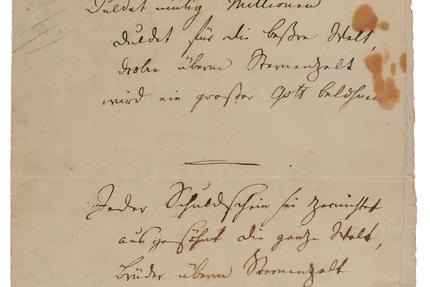 Duldet mutig Millionen
Duldet für die beßre Welt,
droben überm Sternenzelt
wird ein großer Gott belohnen
Jeder Schuldschein sei zernichtet
ausgesöhnt die ganze Welt,
Brüder überm Sternenzelt